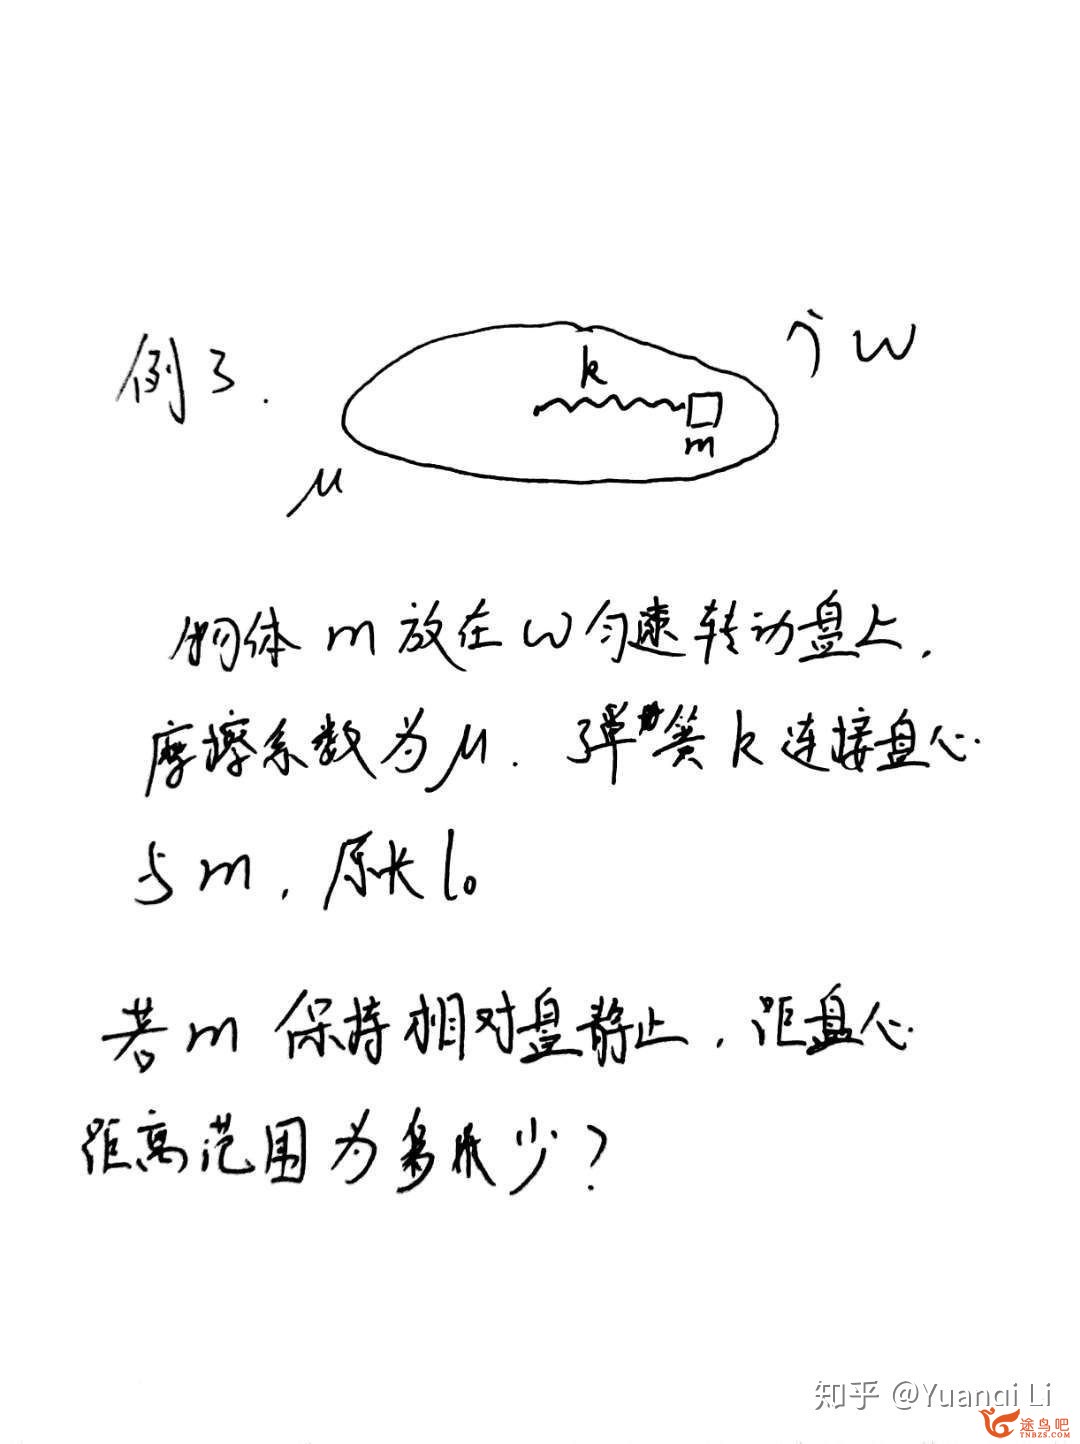 例3.
k
ω
m
μ
物体 m 放在 ω 匀速转动盘上,
摩擦系数为 μ. 弹簧 k 连接盘心
与 m, 原长 l₀
若 m 保持相对盘静止, 距盘心
距离范围为多少?
知乎 @Yuanqi Li
途鸟吧
TNBZS.COM